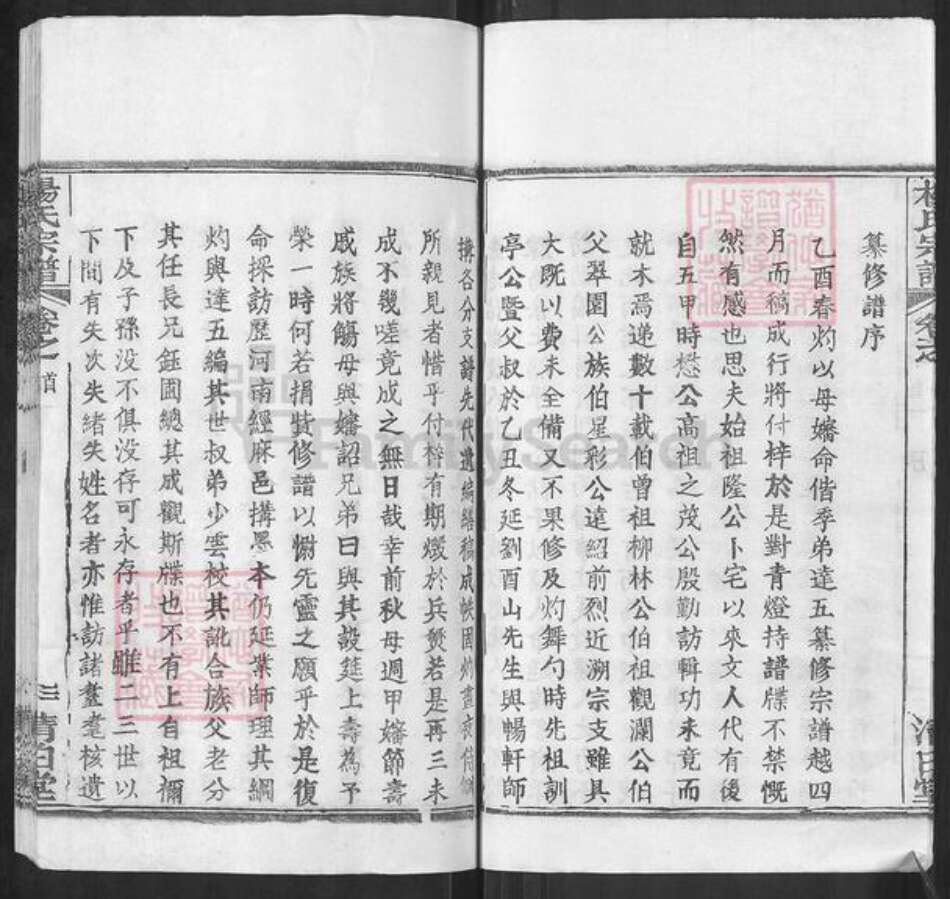 纂修譜序
乙酉春灼以母嬸命偕季弟達五纂修宗譜越四
月而稿成行將付梓於是對青燈持譜牒不禁慨
然有感也思夫始祖隆公卜宅以來文人代有後
自五甲時懋公高祖之茂公殷勤訪輯功未竟而
就木焉遞數十載伯曾祖柳林公伯祖觀瀾公伯
父翠園公族伯星彩公遠紹前烈近溯宗支雖具
大既以費未全備又不果修及灼舞勺時先祖訓
亭公暨父叔於乙丑冬延劉酉山先生與暢軒師
搆各分支譜先代遺編繕稿成帙固灼晝夜侍側
所親見者惜乎付梓有期燬於兵燹若是再三未
成不幾嗟竟成之無日哉幸前秋母週甲嬸節壽
戚族將觴母與嬸詔兄弟曰與其設筵上壽為予
榮一時何若捐貲修譜以慰死靈之願乎於是復
命採訪歷河南經麻邑搆墨本仍延業師理其綱
灼與達五編其世叔弟少雲校其訛合族父老分
其任長兄鈺圃總其成觀斯牒也不有上自祖禰
下及子孫沒不俱沒存可永存者乎雖二三世以
下間有失次失緒失姓名者亦惟訪諸耋耄核遺
楊氏宗譜 卷之首 三 清白堂
FamilySearch